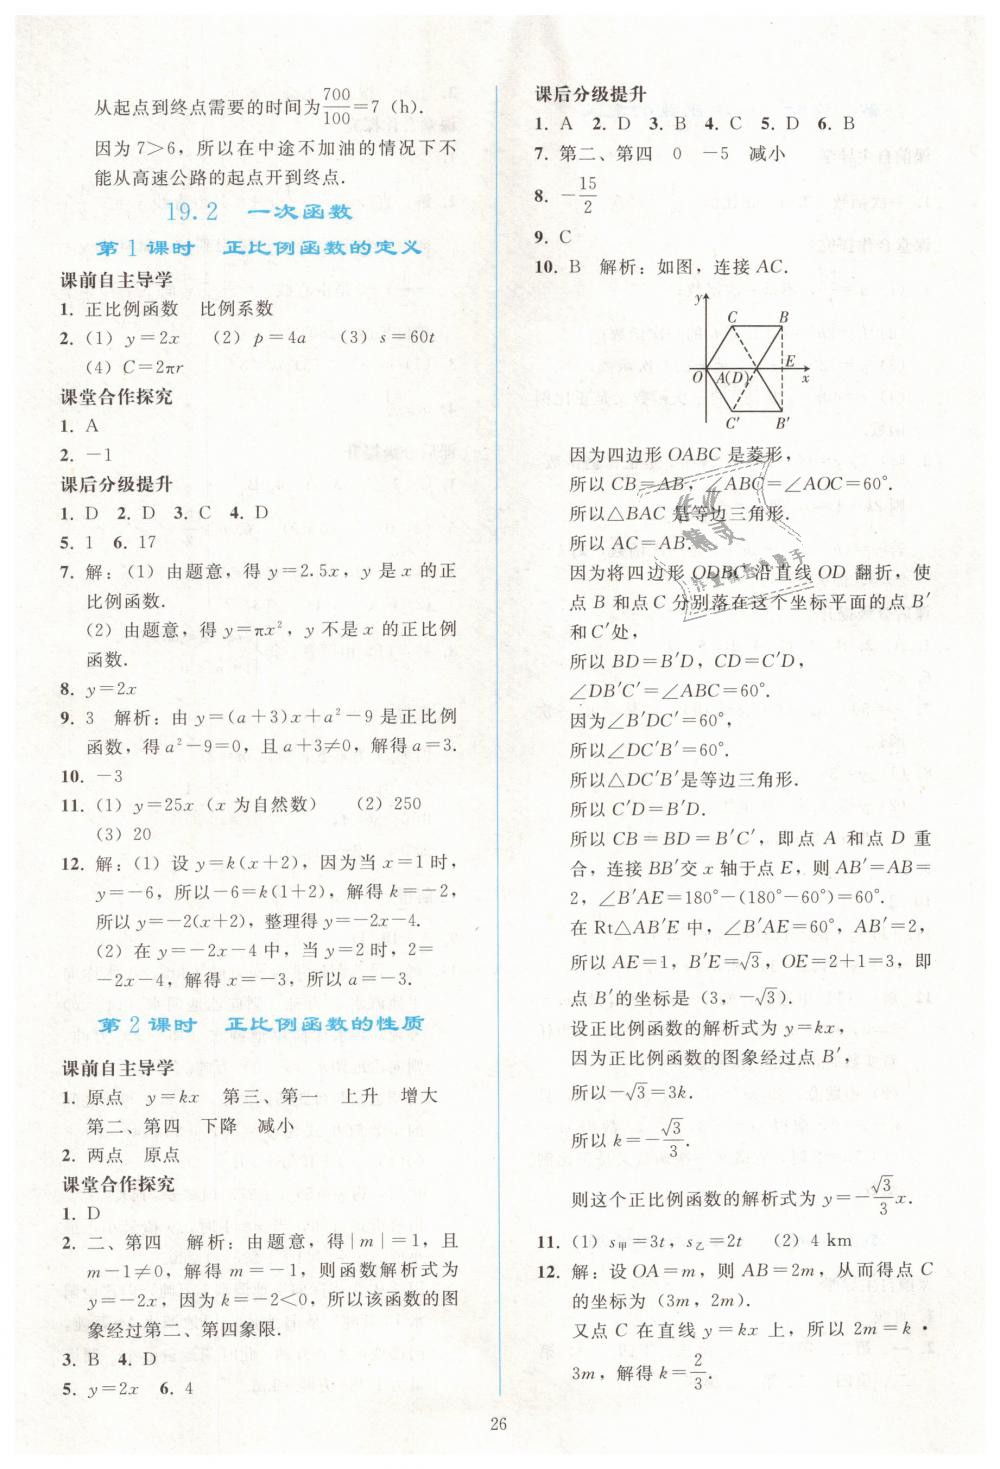 从起点到终点需要的时间为700/100=7（h）.
因为7>6，所以在中途不加油的情况下不
能从高速公路的起点开到终点.
19.2 一次函数
第1课时 正比例函数的定义
课前自主导学
1. 正比例函数 比例系数
2.（1）y=2x （2）p=4a （3）s=60t
（4）C=2πr
课堂合作探究
1. A
2. －1
课后分级提升
1. D 2. D 3. C 4. D
5. 1 6. 17
7. 解：（1）由题意，得y=2.5x，y是x的正
比例函数.
（2）由题意，得y=πx²，y不是x的正比例
函数.
8. y=2x
9. 3 解析：由y=(a+3)x+a²－9是正比例
函数，得a²－9=0，且a+3≠0，解得a=3.
10. －3
11.（1）y=25x（x为自然数） （2）250
（3）20
12. 解：（1）设y=k(x+2)，因为当x=1时，
y=－6，所以－6=k(1+2)，解得k=－2，
所以y=－2(x+2)，整理得y=－2x－4.
（2）在y=－2x－4中，当y=2时，2=
－2x－4，解得x=－3，所以a=－3.
第2课时 正比例函数的性质
课前自主导学
1. 原点 y=kx 第三、第一 上升 增大
第二、第四 下降 减小
2. 两点 原点
课堂合作探究
1. D
2. 二、第四 解析：由题意，得|m|=1，且
m－1≠0，解得m=－1，则函数解析式为
y=－2x，因为k=－2<0，所以该函数的图
象经过第二、第四象限.
3. B 4. D
5. y=2x 6. 4
课后分级提升
1. A 2. D 3. B 4. C 5. D 6. B
7. 第二、第四 0 －5 减小
8. －15/2
9. C
10. B 解析：如图，连接AC.
y
C B
E
O A(D) x
C′ B′
因为四边形OABC是菱形，
所以CB=AB，∠ABC=∠AOC=60°.
所以△BAC是等边三角形.
所以AC=AB.
因为将四边形ODBC沿直线OD翻折，使
点B和点C分别落在这个坐标平面的点B′
和C′处，
所以BD=B′D，CD=C′D，
∠DB′C′=∠ABC=60°.
因为∠B′DC′=60°，
所以∠DC′B′=60°.
所以△DC′B′是等边三角形.
所以C′D=B′D.
所以CB=BD=B′C′，即点A和点D重
合，连接BB′交x轴于点E，则AB′=AB=
2，∠B′AE=180°－(180°－60°)=60°.
在Rt△AB′E中，∠B′AE=60°，AB′=2，
所以AE=1，B′E=√3，OE=2+1=3，即
点B′的坐标是（3，－√3）.
设正比例函数的解析式为y=kx，
因为正比例函数的图象经过点B′，
所以－√3=3k.
所以k=－√3/3.
则这个正比例函数的解析式为y=－√3/3x.
11.（1）s甲=3t，s乙=2t （2）4 km
12. 解：设OA=m，则AB=2m，从而得点C
的坐标为（3m，2m）.
又点C在直线y=kx上，所以2m=k·
3m，解得k=2/3.
26